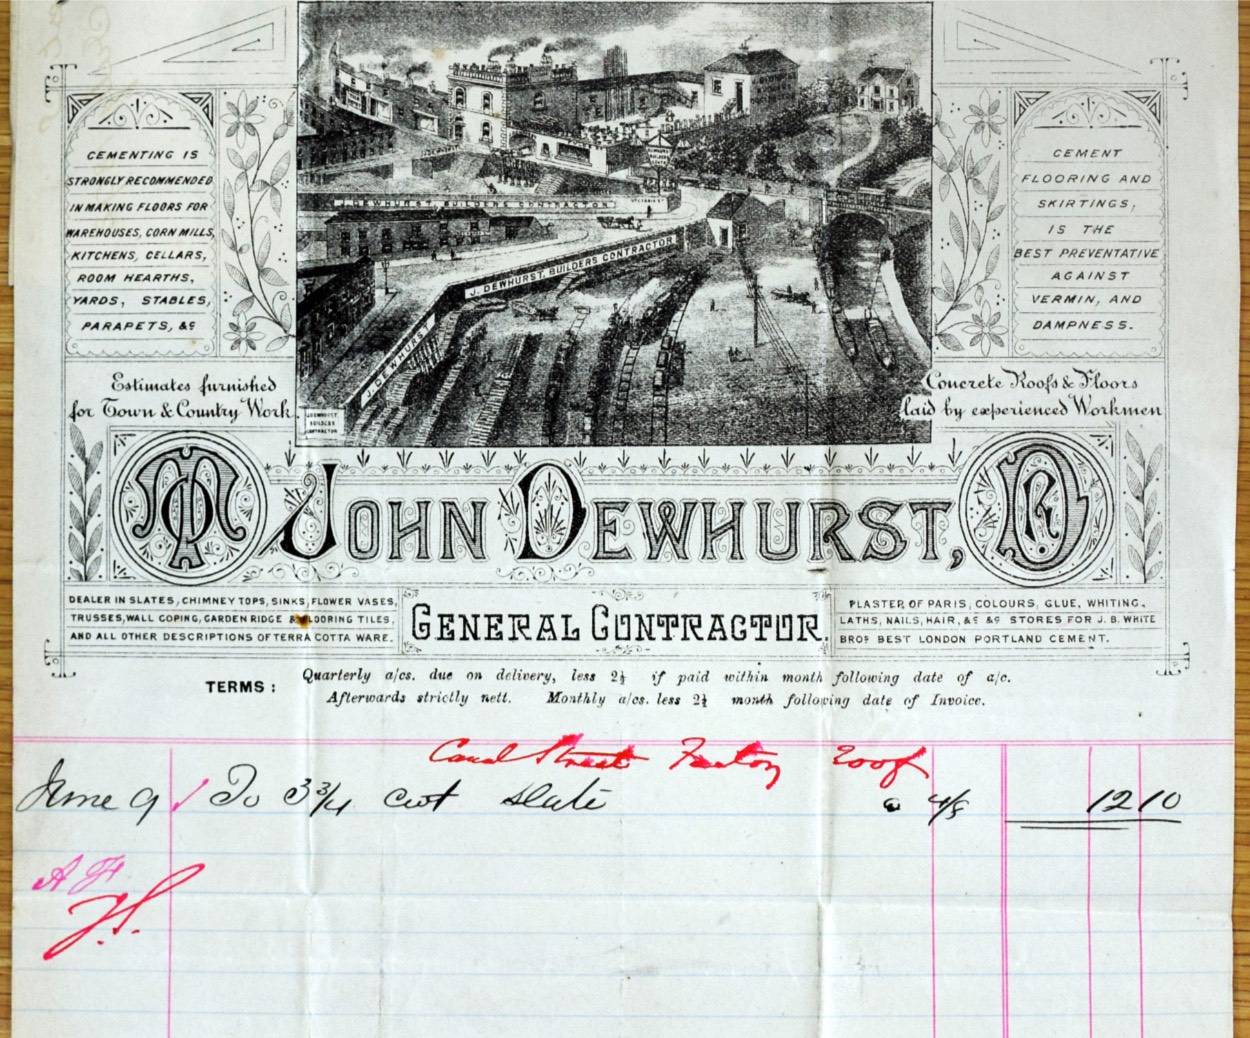 CEMENTING IS
STRONGLY RECOMMENDED
IN MAKING FLOORS FOR
WAREHOUSES, CORN MILLS,
KITCHENS, CELLARS,
ROOM HEARTHS,
YARDS, STABLES,
PARAPETS, &c
CEMENT
FLOORING AND
SKIRTINGS,
IS THE
BEST PREVENTATIVE
AGAINST
VERMIN, AND
DAMPNESS.
J. DEWHURST, BUILDERS CONTRACTOR
VICTORIA ST
J. DEWHURST, BUILDERS CONTRACTOR
J. DEWHURST
J. DEWHURST
BUILDERS
CONTRACTOR
Estimates furnished
for Town & Country Work
Concrete Roofs & Floors
laid by experienced Workmen
JOHN DEWHURST,
DEALER IN SLATES, CHIMNEY TOPS, SINKS, FLOWER VASES,
TRUSSES, WALL COPING, GARDEN RIDGE & FLOORING TILES,
AND ALL OTHER DESCRIPTIONS OF TERRA COTTA WARE.
GENERAL CONTRACTOR.
PLASTER OF PARIS, COLOURS, GLUE, WHITING,
LATHS, NAILS, HAIR, &c &c STORES FOR J. B. WHITE
BROs BEST LONDON PORTLAND CEMENT.
TERMS: Quarterly a/cs. due on delivery, less 2½ if paid within month following date of a/c.
Afterwards strictly nett. Monthly a/cs. less 2½ month following date of Invoice.
Canal Street Factory Roof
June 9 To 3 3/4 cwt slate @ 4/8 12 10